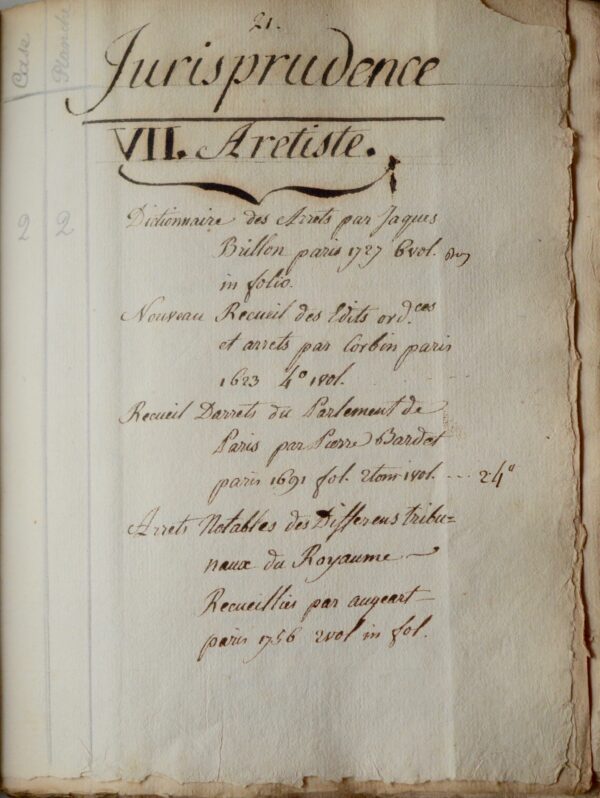 21.
Case Planche
Jurisprudence
VII. Aretiste.
2 2
Dictionnaire des Arrets par Jaques
Brillon paris 1727 6 vol.
in folio.
Nouveau Recueil des Edits ord.ces
et arrets par Corbin paris
1623 4º 1vol.
Recueil Darrets du Parlement de
Paris par Pierre Bardet
paris 1691 fol. 2tom 1vol. ... 24º
Arrets Notables des Differens tribu=
naux du Royaume
Recueillies par augeart
paris 1756 2vol in fol.